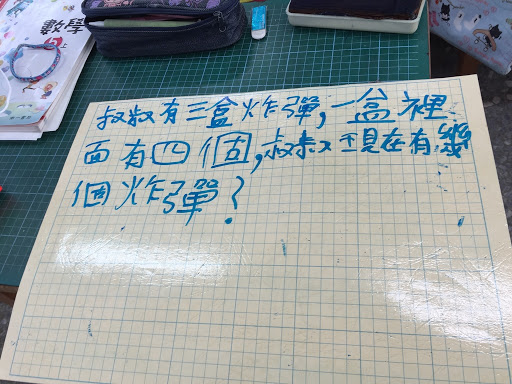 數學
叔叔有三盒炸彈,一盒裡
面有四個,叔叔現在有幾
個炸彈?